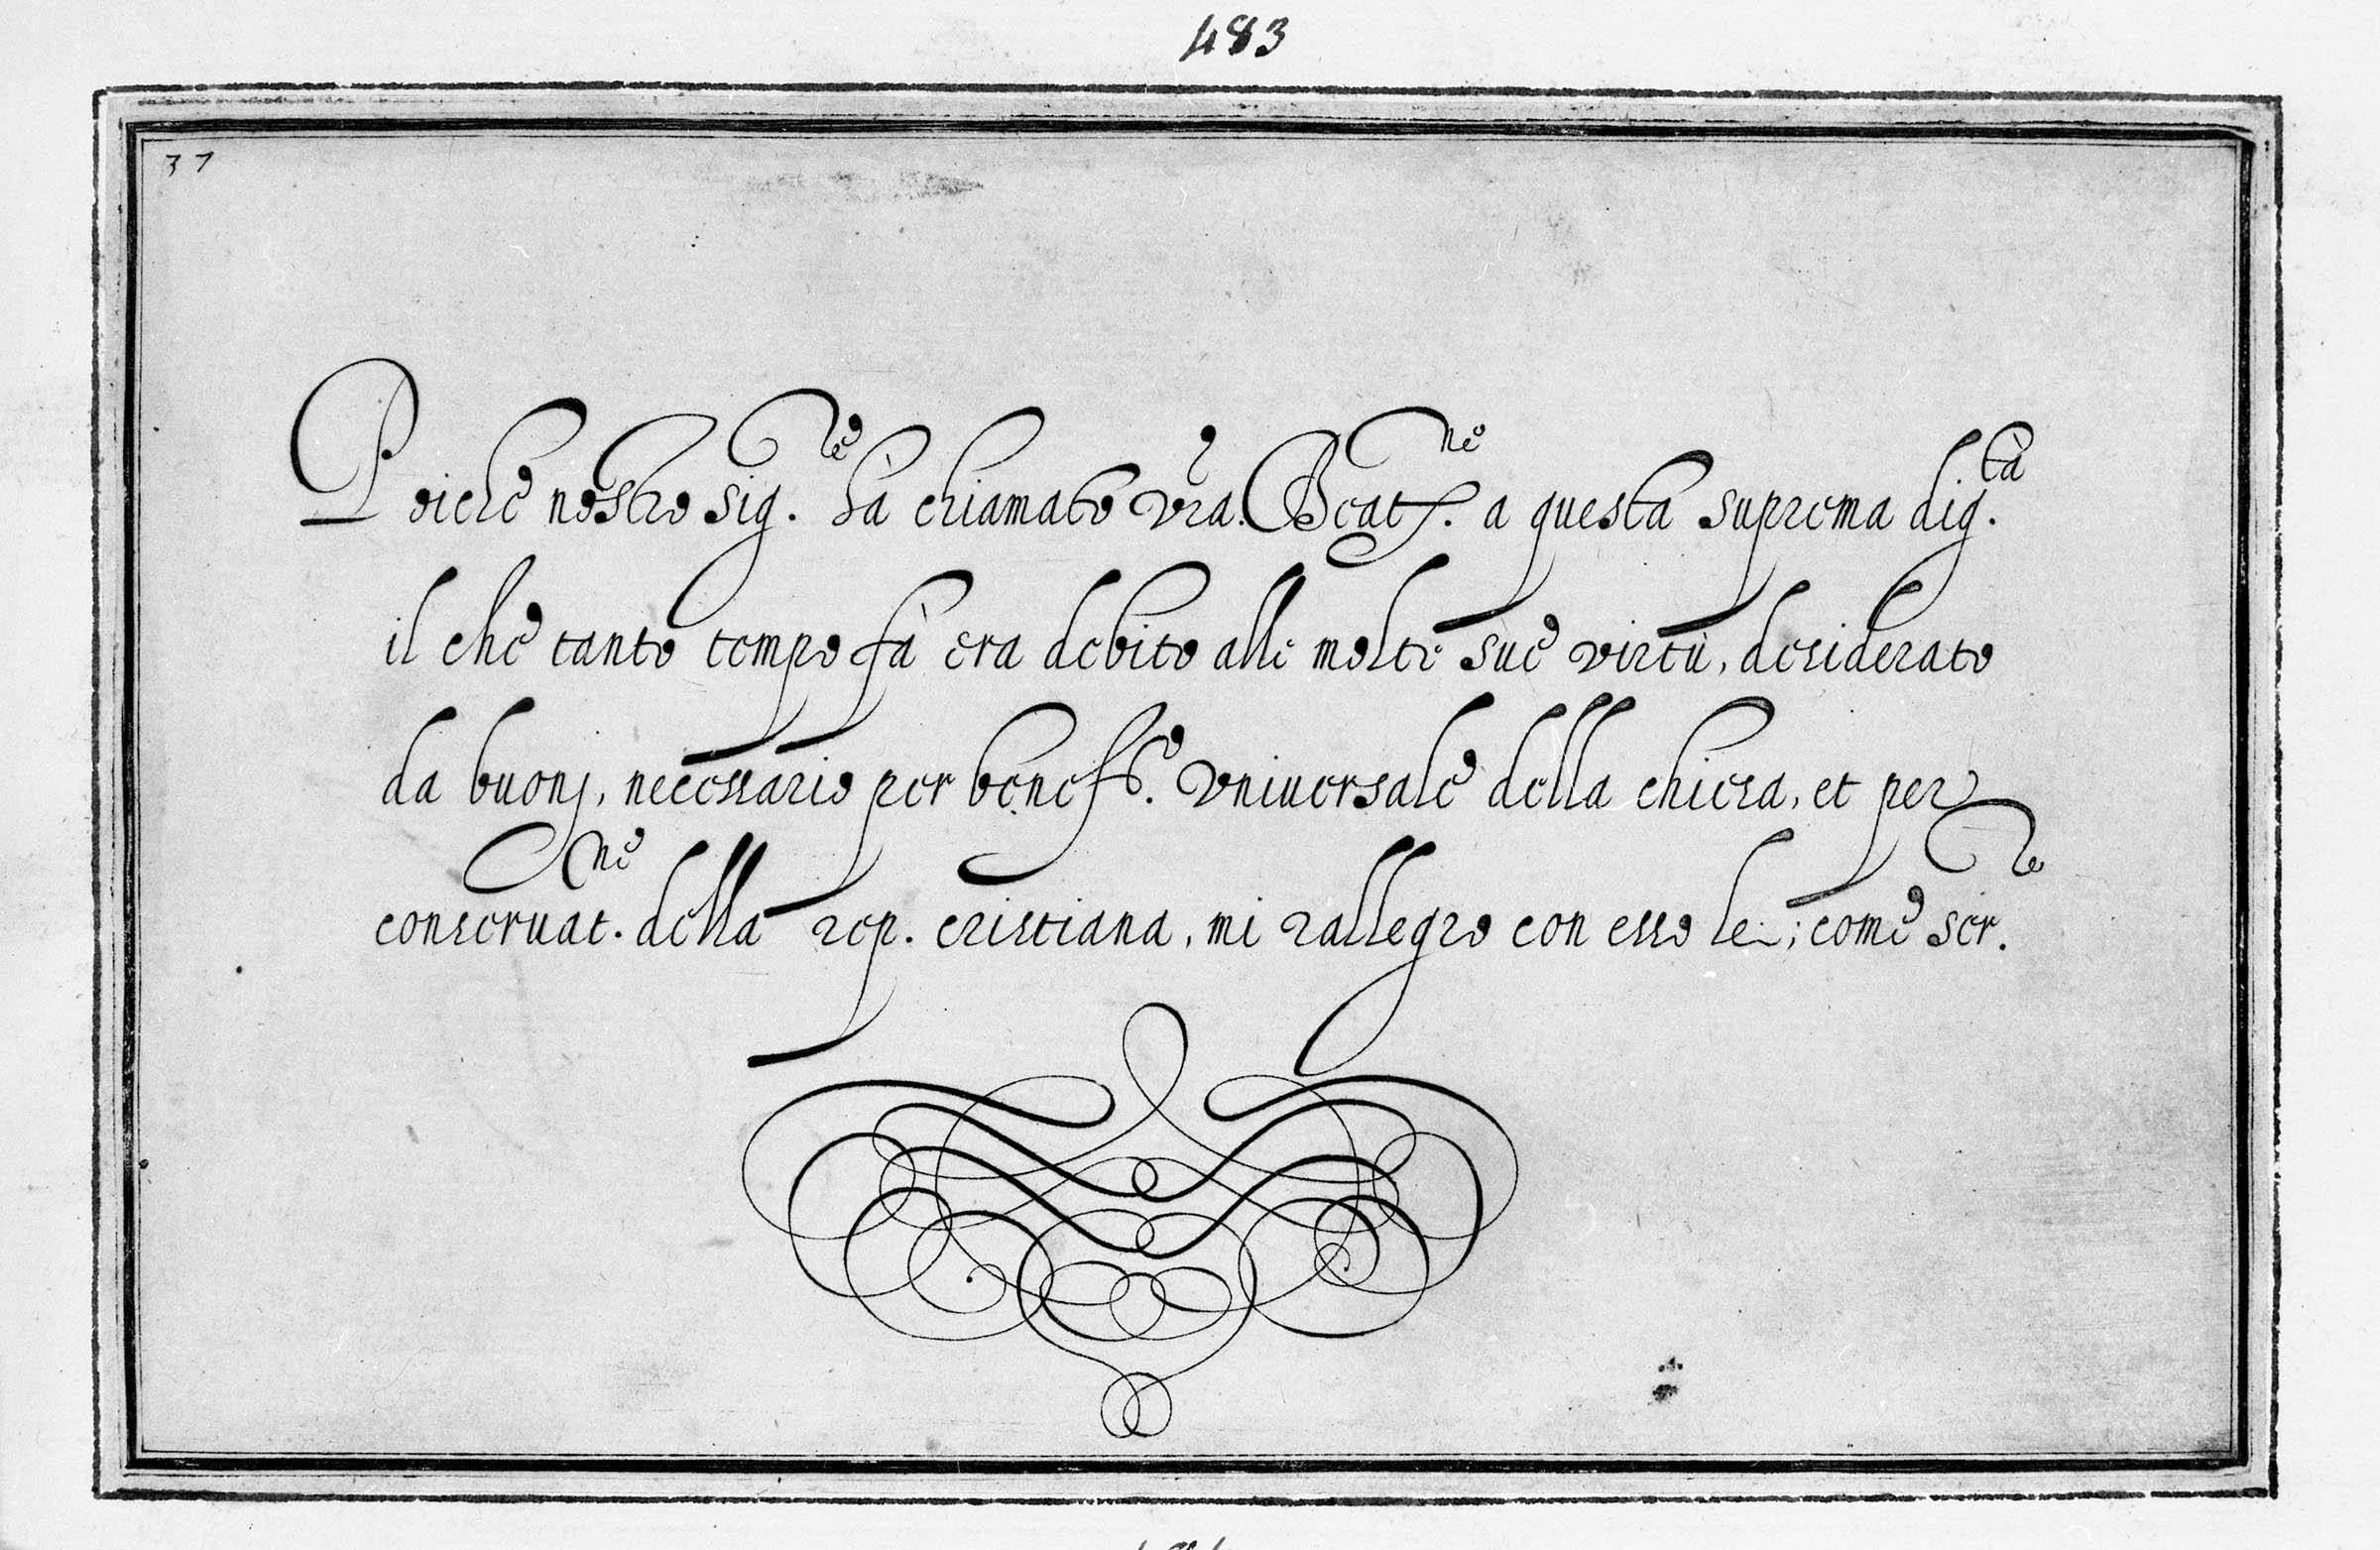 483
37
Poiche nostro sig.re hà chiamato vr̃a. Beat.ne a questa suprema dig.tà
il che tanto tempo fà era debito alle molte sue virtù, desiderato
da buonj, necessario per benef.o vniuersale della chiesa, et per
conseruat.ne della rep. cristiana, mi rallegro con esso lei; come ser.re